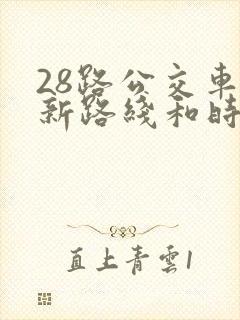 28路公交車
新路綫和時
直上青雲1